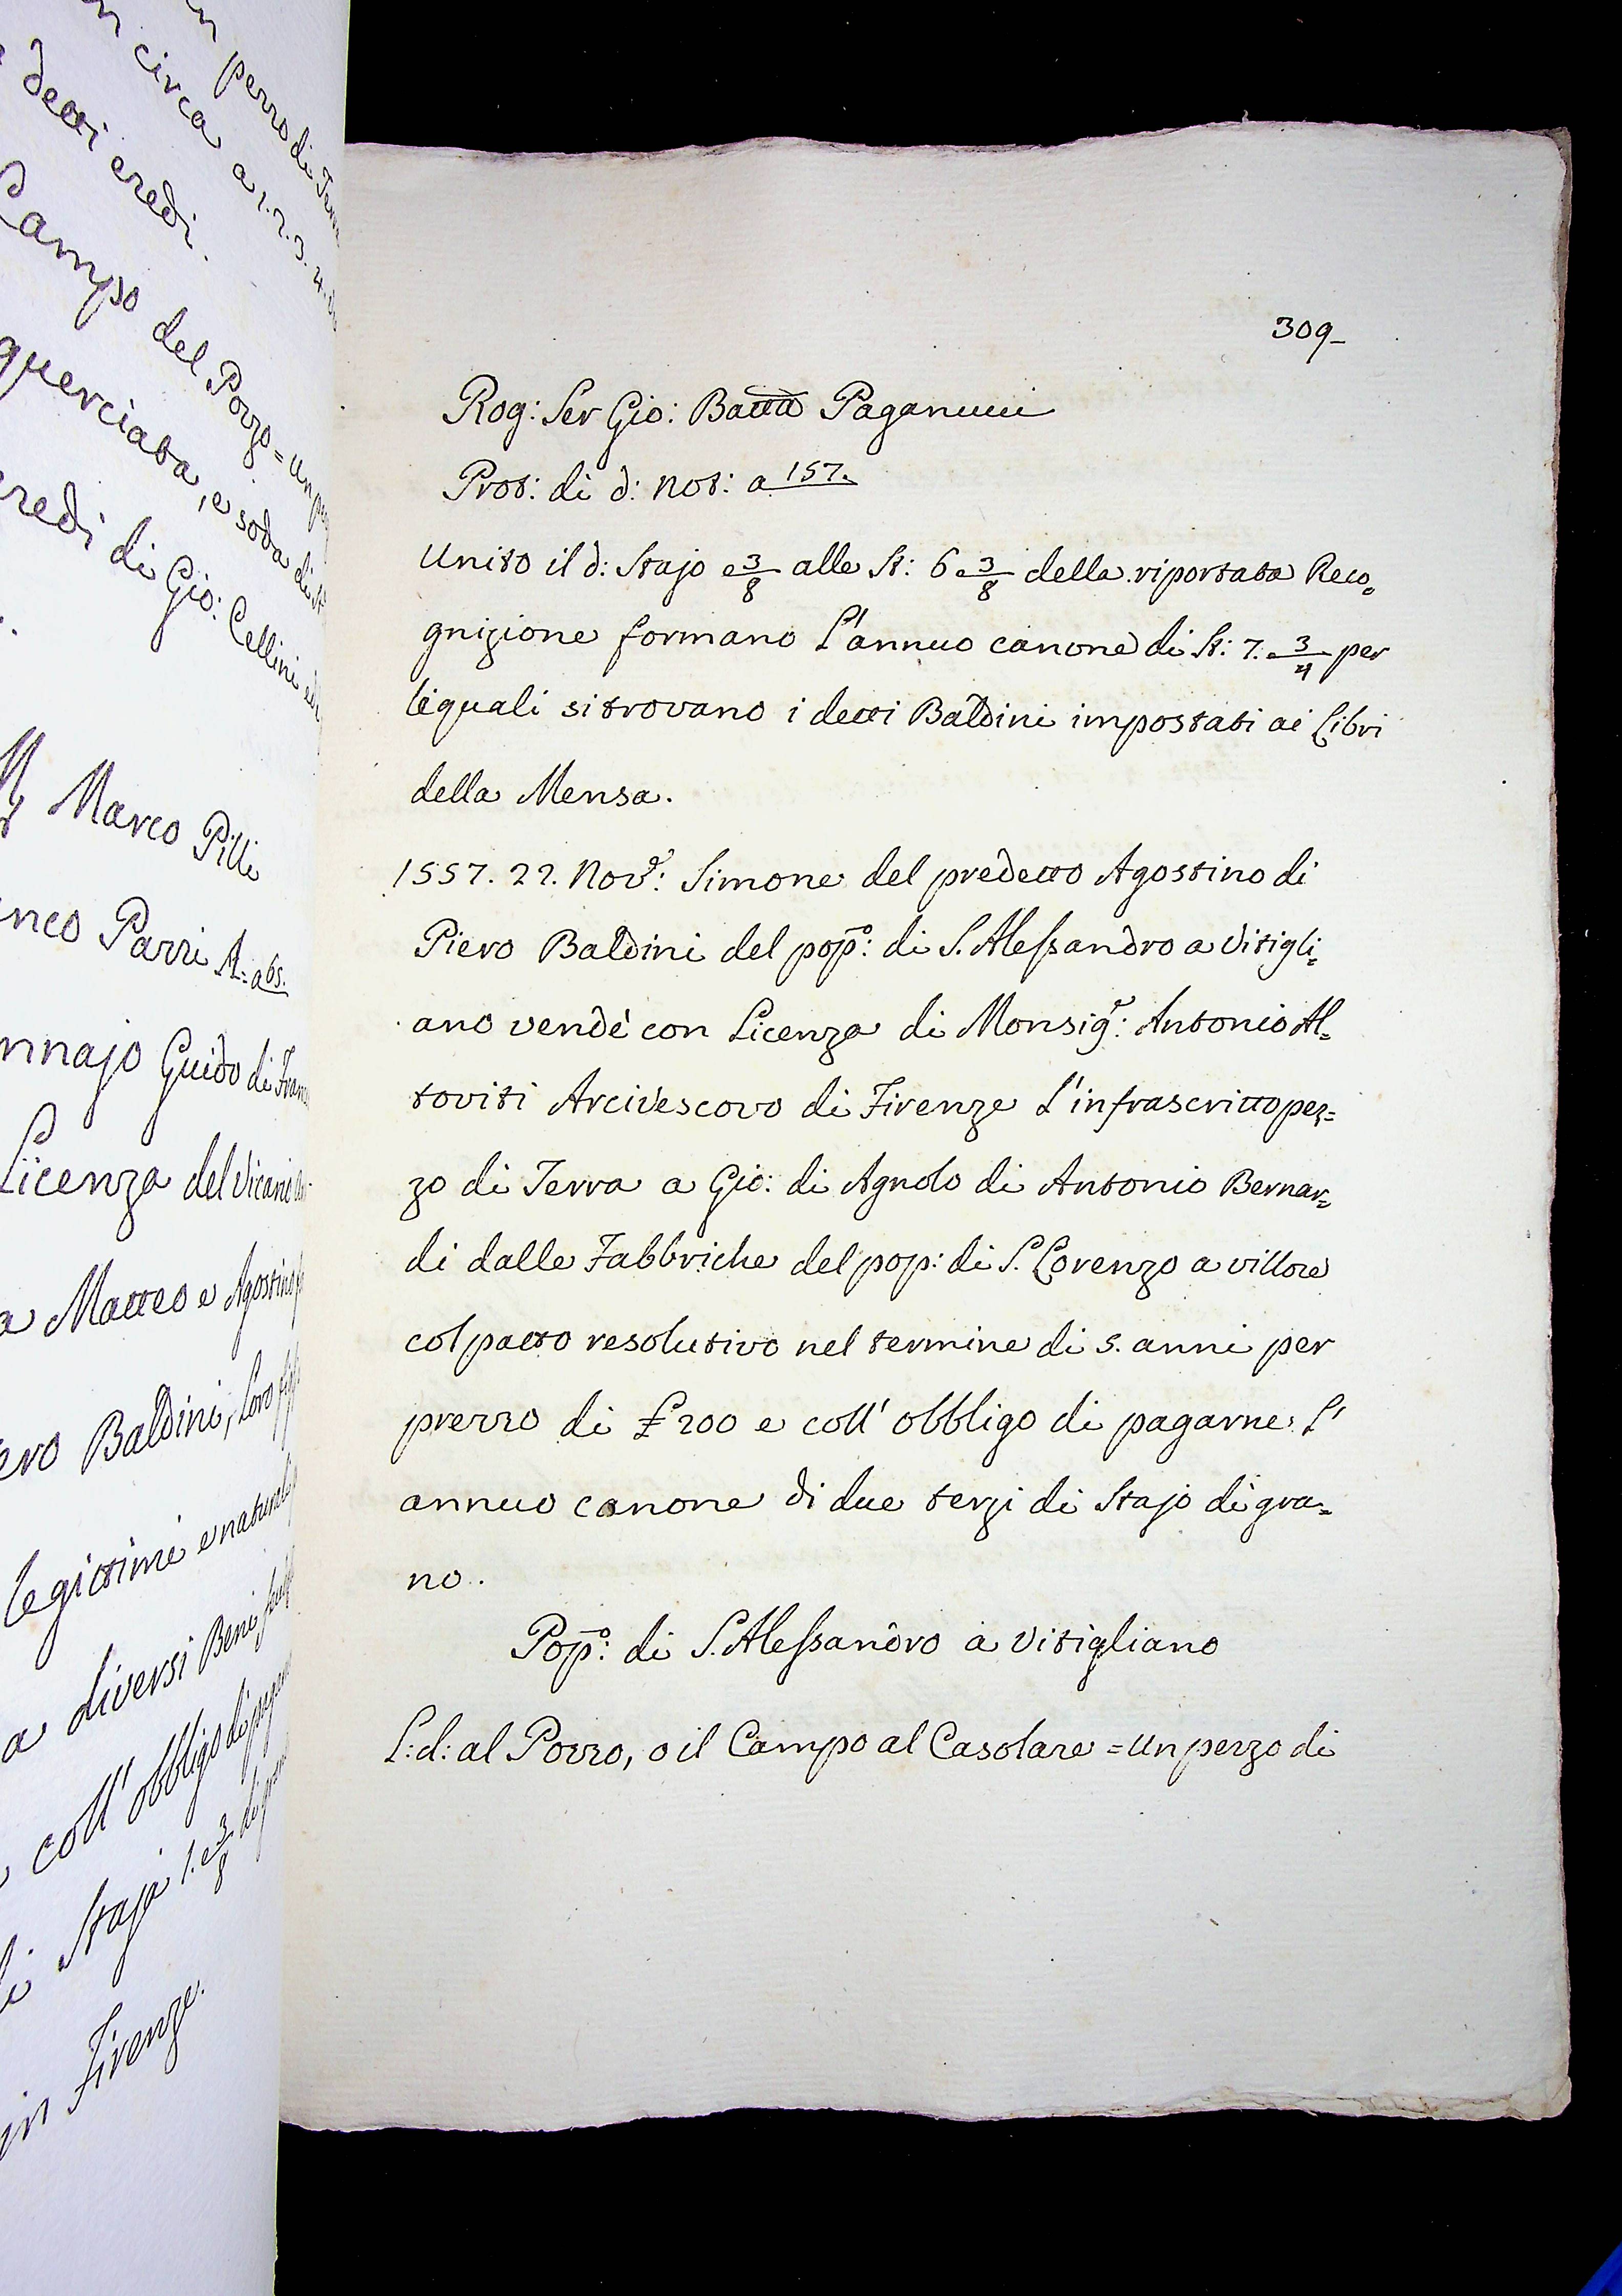 n perzo di Terr
n circa a 1. 2. 3. 4.
detti eredi.
Campo del Pozzo = un
querciata, e soda di
eredi di Gio: Cellini e
Marco Pilli
Parri St: a 65.
nnajo Guido di Fran
Licenza del Vicario
a Matteo e Agostino
ero Baldini, loro
legittimi e naturali
a diversi Beni
coll' obbligo di
di Staja 1. e 3/8 di
in Firenze.
309
Rog: Ser Gio: Batta Paganucci
Prot: di d: Not: a 157.
Unito il d: Stajo e 3/8 alle St: 6 e 3/8 della riportata Reco=
gnizione formano l'annuo canone di St: 7. e 3/4 per
le quali si trovano i detti Baldini impostati ai Libri
della Mensa.
1557. 22. Nove: Simone del predetto Agostino di
Piero Baldini del popo: di S. Alessandro a Vitigli=
ano vendè con Licenza di Monsigr: Antonio Al=
toviti Arcivescovo di Firenze l'infrascritto pez=
zo di Terra a Gio: di Agnolo di Antonio Bernar=
di dalle Fabbriche del pop: di S. Lorenzo a villore
col patto resolutivo nel termine di 5. anni per
prezzo di £ 200 e coll' obbligo di pagarne l'
annuo canone di due terzi di Stajo di gra=
no.
Popo: di S. Alessandro a Vitigliano
L: d: al Pozzo, o il Campo al Casolare = un pezzo di